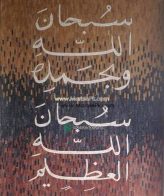 سُبْحَانَ
اللَّهِ
وَبِحَمْدِهِ
سُبْحَانَ
اللَّهِ
العَظِيمِ